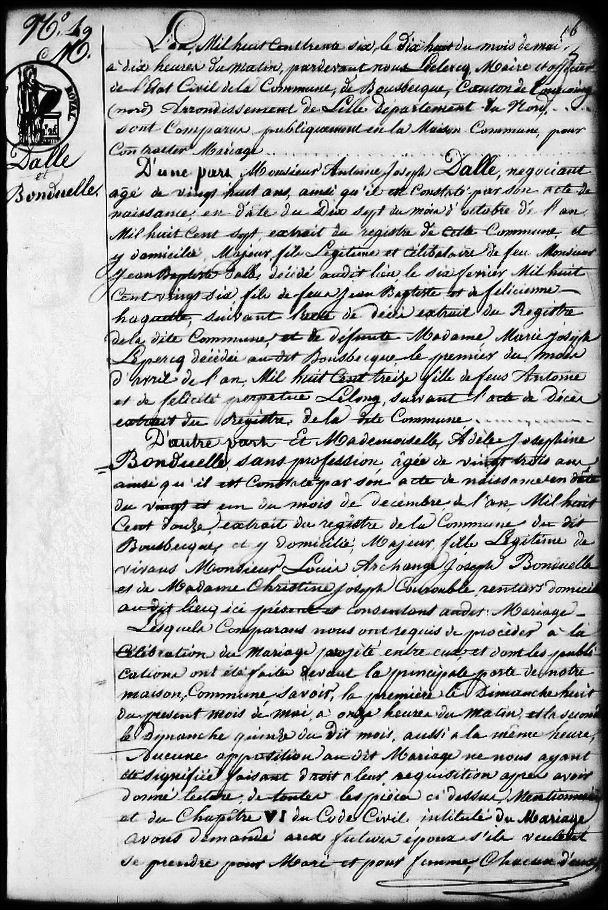 N.° 49
M.
ROYAL
Dalle
et
Bonduelle.
L'an, Mil huit cent trente six, le dix huit du mois de mai,
à dix heures du matin, pardevant nous Leclercq, Maire et officier
de l'Etat Civil de la Commune, de Bousbecque, Canton de Tourcoing
(nord) Arrondissement de Lille département du Nord,
sont Comparus, publiquement en la Maison Commune, pour
Contracter Mariage
D'une part, Monsieur Antoine Joseph Dalle, négociant
agé de vingt huit ans, ainsi qu'il est Constaté par son acte de
naissance, en date du Dix sept du mois d'octobre de l'an
Mil huit Cent sept, extrait du registre de cette Commune, et
y domicilié, Majeur, fils Légitime et célibataire de feu Monsieur
Jean Baptiste Dalle, décédé audit lieu le six février Mil huit
Cent vingt six, fils de feus Jean Baptiste et de félicienne
suivant l'acte de décès extrait du Registre
de la dite Commune, et de défunte Madame Marie Joseph
Lepercq décédée au dit Bousbecque le premier du mois
d'avril de l'an, Mil huit Cent treize, fille de feus Antoine
et de félicité perpetue Lelong, suivant l'acte de décès
extrait du Registre, de la dite Commune
D'autre part Et Mademoiselle, Adèle Josephine
Bonduelle, sans profession, âgée de vingt trois ans
ainsi qu'il est Constaté par son acte de naissance en date
du vingt et un du mois de décembre de l'an Mil huit
Cent douze, extrait du registre de la Commune, du dit
Bousbecque, et y domiciliée, Majeur, fille Légitime de
vivans Monsieur Louis Archange Joseph Bonduelle
et de Madame Christine Joseph Couroublé rentiers domiciliés
au dit lieu, ici présens et consentans audit Mariage
Lesquels Comparans nous ont requis de procéder à la
Célébration du Mariage projeté entre eux, et dont les publi
cations ont été faites devant la principale porte de notre
maison, Commune, savoir, la première le Dimanche huit
du présent mois de mai, à onze heures du matin, et la seconde
le Dimanche quinze du dit mois, aussi à la même heure,
Aucune opposition au dit Mariage ne nous ayant
été signifiée, faisant droit à leur requisition, après avoir
donné lecture, de toutes les pièces ci dessus, Mentionnées
et du Chapitre VI du Code Civil intitulé du Mariage
avons demandé aux futurs époux s'ils veulent
se prendre pour Mari et pour femme, Chacun d'eux,